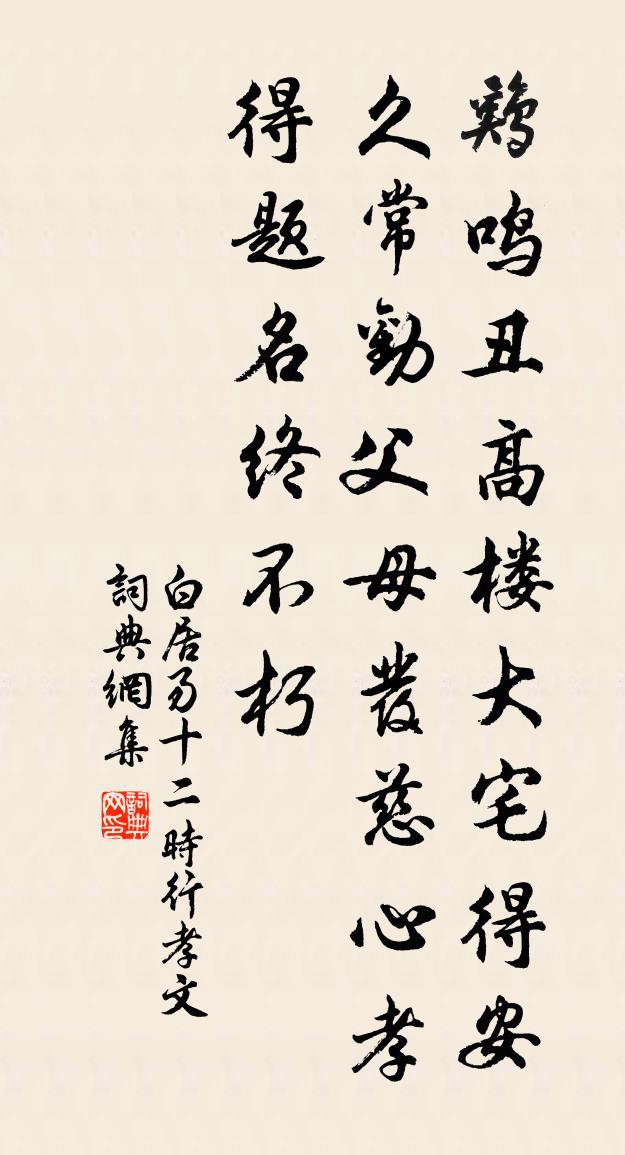 鷄鳴丑高楼大宅得安
久常勸父母發慈心孝
得题名终不朽
白居易十二時行孝文
詞典網集
詞典网印